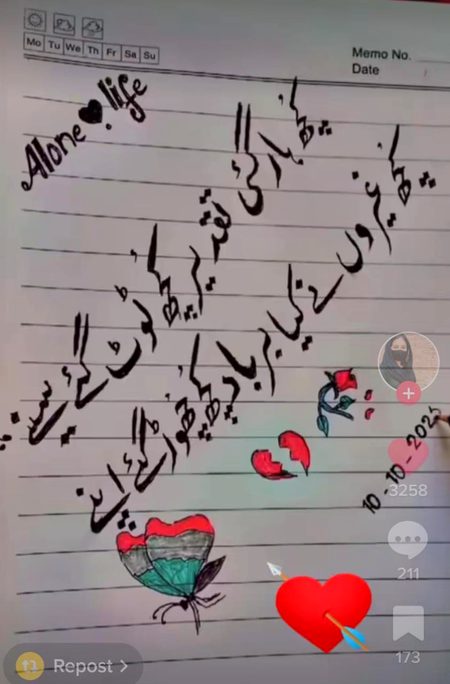 Mo Tu We Th Fr Sa Su
Memo No.
Date
Alone life
کچھ ہار گئی تقدیر کچھ ٹوٹ گئے سپنے
کچھ غیروں نے کیا برباد کچھ چھوڑ گئے اپنے
10-10-2025
3258
211
173
Repost >